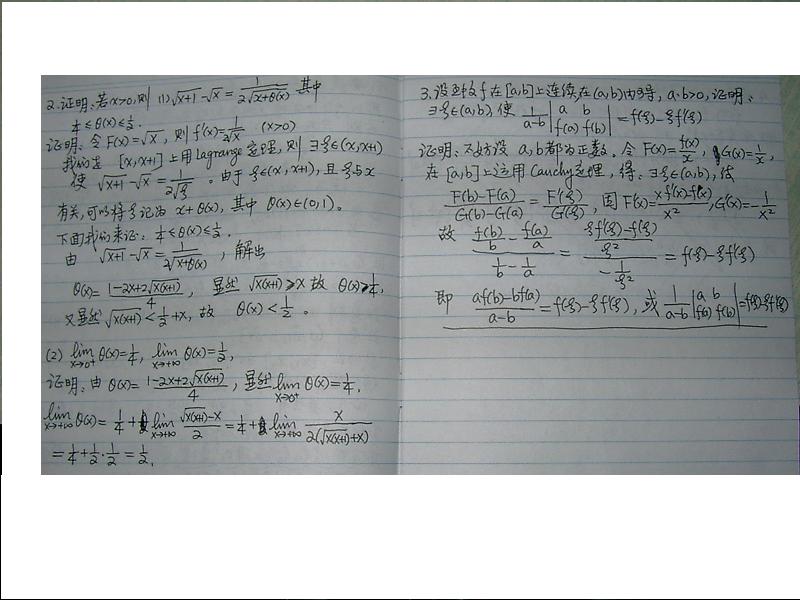 2.证明:若x>0,则 (1) √(x+1)-√x = 1/(2√(x+θ(x))) 其中
1/4≤θ(x)≤1/2.
证明:令F(x)=√x, 则f'(x)=1/(2√x) (x>0)
我们在 [x,x+1]上用Lagrange定理,则∃ξ∈(x,x+1)
使 √(x+1)-√x=1/(2√ξ)。由于ξ∈(x,x+1),且ξ与x
有关,可以将ξ记为x+θ(x),其中θ(x)∈(0,1)。
下面我们来证: 1/4≤θ(x)≤1/2.
由 √(x+1)-√x=1/(2√(x+θ(x))), 解出
θ(x)=(1-2x+2√(x(x+1)))/4, 显然 √(x(x+1))≥x 故 θ(x)≥1/4,
又显然√(x(x+1))<1/2+x, 故 θ(x)<1/2。
(2) lim x→0⁺ θ(x)=1/4, lim x→+∞ θ(x)=1/2,
证明:由 θ(x)=(1-2x+2√(x(x+1)))/4, 显然 lim x→0⁺ θ(x)=1/4,
lim x→+∞ θ(x)=1/4+lim x→+∞ (√(x(x+1))-x)/2=1/4+lim x→+∞ x/(2(√(x(x+1))+x))
=1/4+1/2·1/2=1/2.
3.设f在[a,b]上连续,在(a,b)内可导, a·b>0,证明:
∃ξ∈(a,b),使 1/(a-b) |a b; f(a) f(b)|=f(ξ)-ξf'(ξ)
证明:不妨设a,b都为正数.令F(x)=f(x)/x, G(x)=1/x,
在[a,b]上运用Cauchy定理,得:∃ξ∈(a,b),使
(F(b)-F(a))/(G(b)-G(a))=F'(ξ)/G'(ξ), 因F'(x)=(xf'(x)-f(x))/x², G'(x)=-1/x²
故 (f(b)/b-f(a)/a)/(1/b-1/a)=((ξf'(ξ)-f(ξ))/ξ²)/(-1/ξ²)=f(ξ)-ξf'(ξ)
即 (af(b)-bf(a))/(a-b)=f(ξ)-ξf'(ξ),或 1/(a-b) |a b; f(a) f(b)|=f(ξ)-ξf'(ξ)